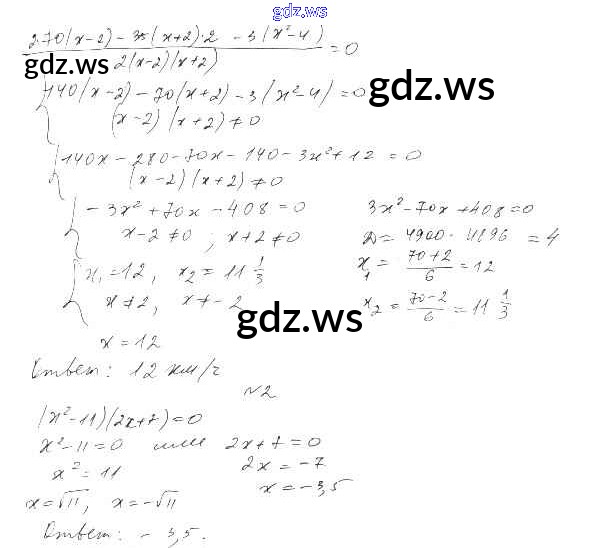 gdz.ws
2·70(x-2) - 35(x+2)·2 - 3(x²-4)
2(x-2)(x+2) = 0
gdz.ws
140(x-2) - 70(x+2) - 3(x²-4) = 0
gdz.ws
(x-2)(x+2) ≠ 0
140x - 280 - 70x - 140 - 3x² + 12 = 0
(x-2)(x+2) ≠ 0
-3x² + 70x - 408 = 0
x-2 ≠ 0; x+2 ≠ 0
3x² - 70x + 408 = 0
D = 4900 - 4896 = 4
x₁ = (70+2)/6 = 12
x₂ = (70-2)/6 = 11 1/3
x₁ = 12, x₂ = 11 1/3
x ≠ 2, x ≠ -2
gdz.ws
x = 12
Ответ: 12 км/ч
№2
(x²-11)(2x+7) = 0
x²-11 = 0 или 2x+7 = 0
x² = 11 2x = -7
x = √11, x = -√11 x = -3,5
Ответ: -3,5.
gdz.ws